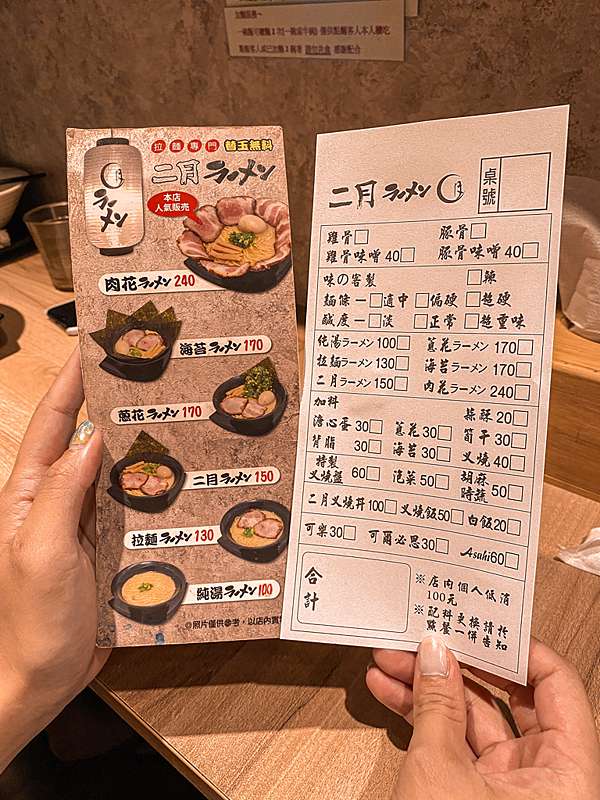 一碗麵可續麵2次(一碗或半碗) 僅供點麵客人本人續吃
拉麵專門 替玉無料
二月ラーメン
ラーメン
本店
人氣販売
肉花ラーメン240
海苔ラーメン170
蔥花ラーメン170
二月ラーメン150
拉麵ラーメン130
純湯ラーメン100
◎照片僅供參考，以店內實
二月ラーメン 月
桌號
雞骨□ 豚骨□
雞骨味噌40□ 豚骨味噌40□
味の客製 □辣
麵條－□適中 □偏硬 □超硬
鹹度－□淡 □正常 □超重味
純湯ラーメン100□ 蔥花ラーメン170□
拉麵ラーメン130□ 海苔ラーメン170□
二月ラーメン150□ 肉花ラーメン240□
加料 蒜酥20□
溏心蛋30□ 蔥花30□ 筍干30□
背脂30□ 海苔30□ 叉燒40□
特製叉燒盤60□ 泡菜50□ 胡麻時蔬50□
二月叉燒丼100□ 叉燒飯50□ 白飯20□
可樂30□ 可爾必思30□ Asahi60□
合計
※店內個人低消
100元
※配料更換請於
點餐一併告知